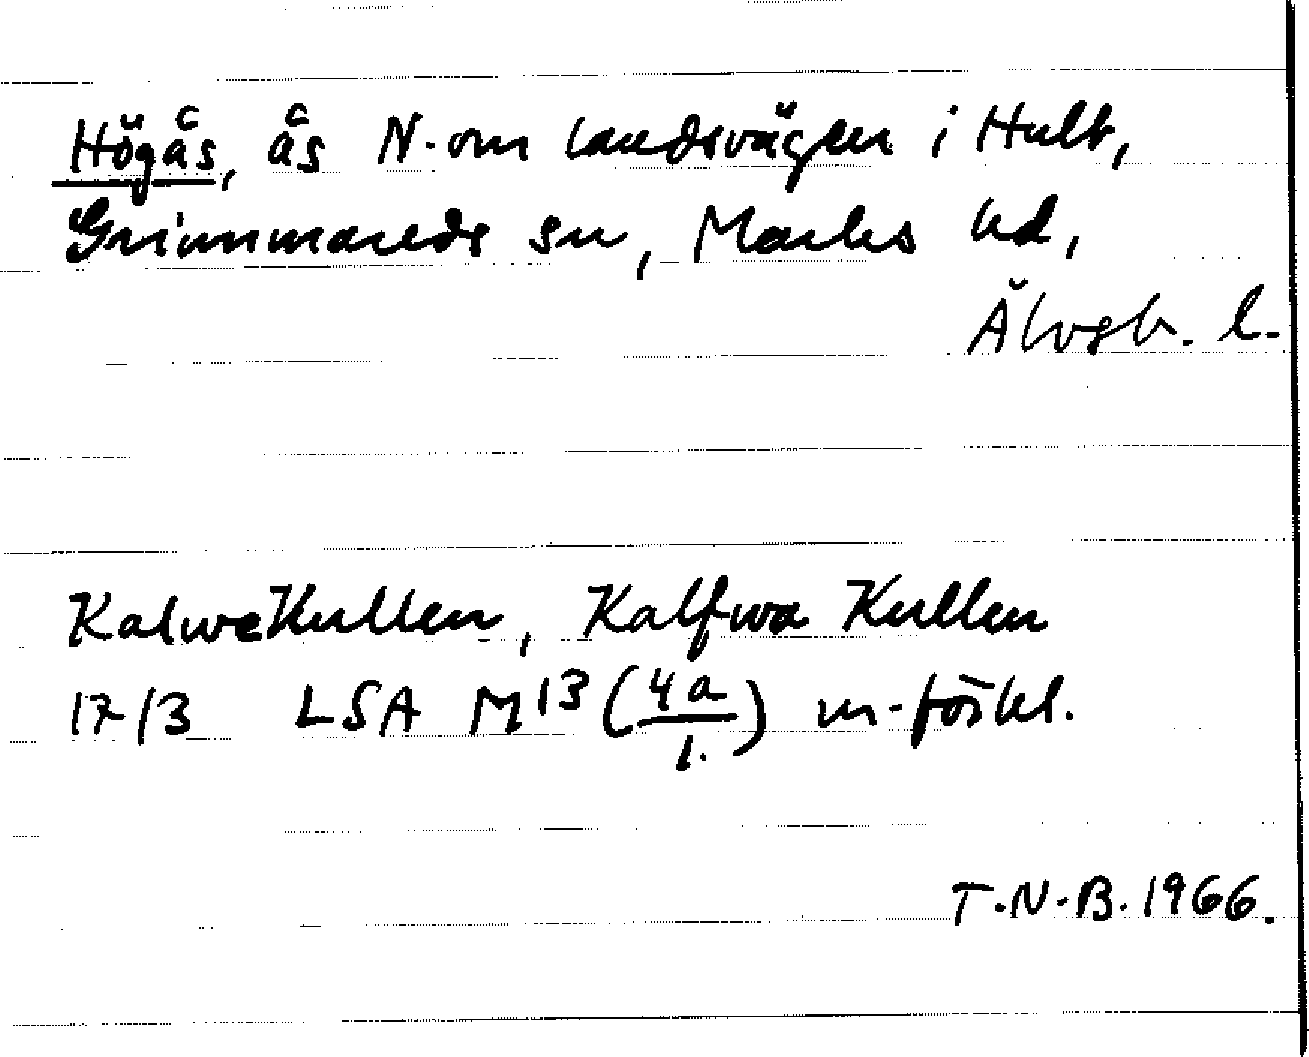 Högås, ås N. om landsvägen i Hult,
Grimmareds sn, Marks hd,
Älvsb. l.
Kalwekullen, Kalfwa Kullen
17/3 LSA M13 (4a/1.) m. förkl.
T.N.B. 1966.